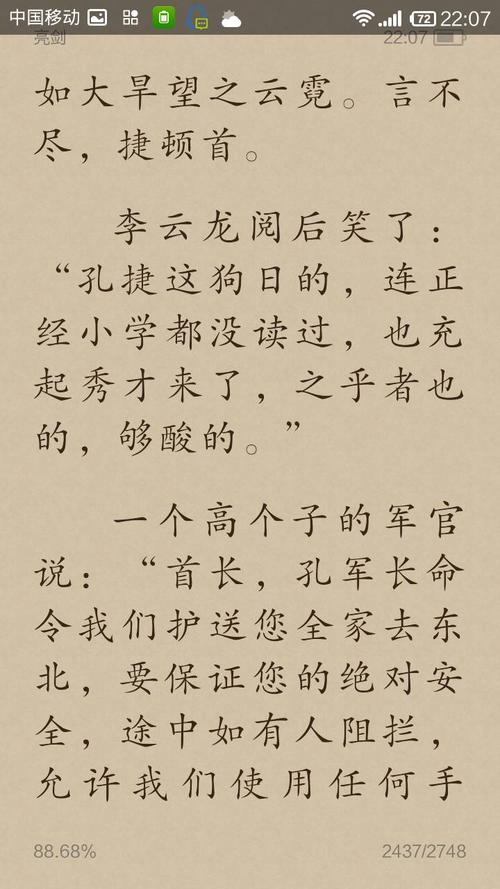 中国移动 72 22:07
亮剑 22:07
如大旱望之云霓。言不
尽，捷顿首。
李云龙阅后笑了：
“孔捷这狗日的，连正
经小学都没读过，也充
起秀才来了，之乎者也
的，够酸的。”
一个高个子的军官
说：“首长，孔军长命
令我们护送您全家去东
北，要保证您的绝对安
全，途中如有人阻拦，
允许我们使用任何手
88.68% 2437/2748